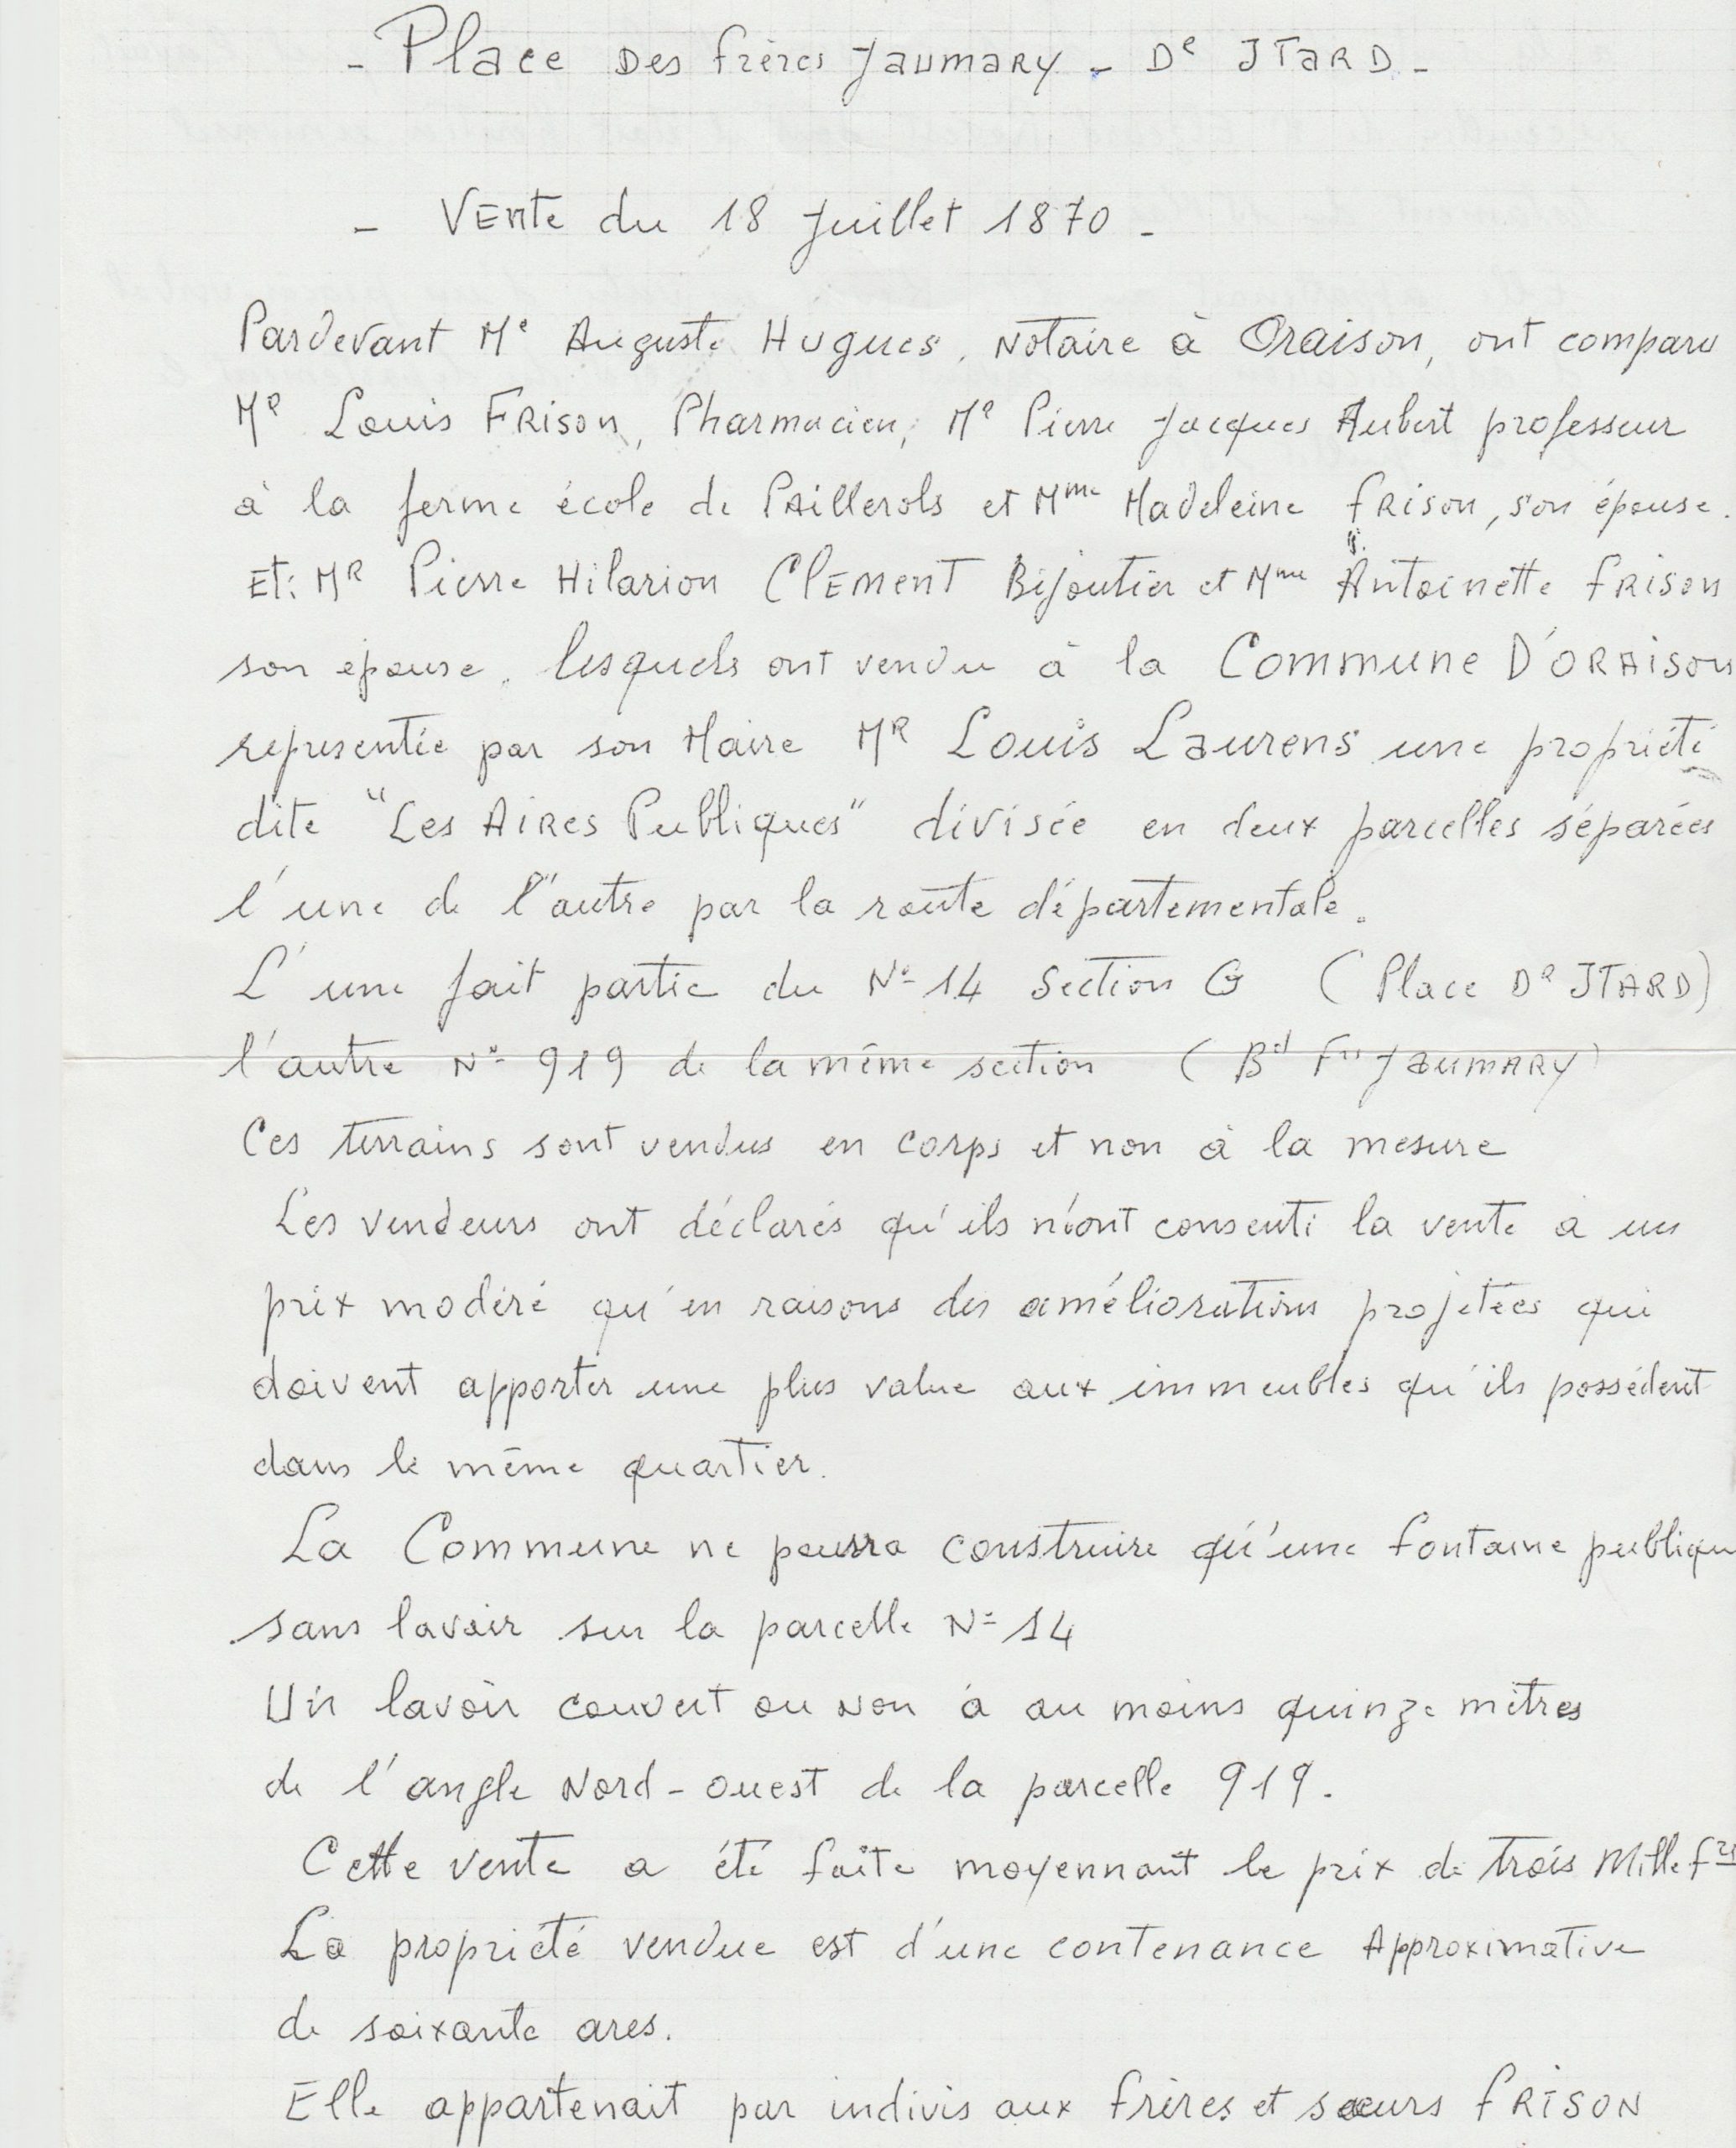 - Place Des frères Jaumary - De ITARD -
- Vente du 18 Juillet 1870 -
Pardevant Me Auguste Hugues, Notaire à Oraison, ont comparu
MR Louis FRISON, Pharmacien, MR Pierre Jacques Aubert professeur
à la ferme école de PAillerols et Mme Madeleine fRison, son épouse.
Et: MR Pierre Hilarion CLEMENT Bijoutier et Mme Antoinette fRISON
son épouse, lesquels ont vendu à la Commune D'ORAISON
représentée par son Maire MR Louis Laurens une propriété
dite "Les AIRES Publiques" divisée en deux parcelles séparées
l'une de l'autre par la route départementale.
L'une fait partie du N° 14 Section G (Place DR ITARD)
l'autre N° 919 de la même section (Bd Frs JAUMARY)
Ces terrains sont vendus en corps et non à la mesure
Les vendeurs ont déclarés qu'ils n'ont consenti la vente à un
prix modéré qu'en raisons des améliorations projetées qui
doivent apporter une plus value aux immeubles qu'ils possédent
dans le même quartier.
La Commune ne pourra construire qu'une fontaine publiqu
sans lavoir sur la parcelle N° 14
Un lavoir couvert ou non à au moins quinze mètres
de l'angle Nord-ouest de la parcelle 919.
Cette vente a été faite moyennant le prix de trois Mille frs
La propriété vendue est d'une contenance Approximative
de soixante ares.
Elle appartenait par indivis aux frères et sœurs fRISON